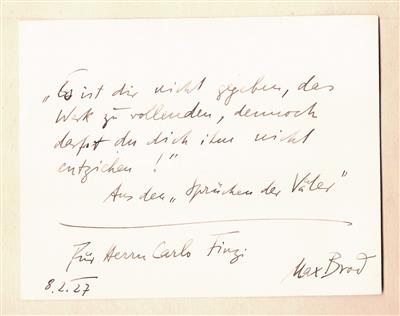 „Es ist dir nicht gegeben, das
Werk zu vollenden, dennoch
darfst du dich ihm nicht
entziehen!"
Aus den „Sprüchen der Väter"
Für Herrn Carlo Finzi
Max Brod
8.2.27